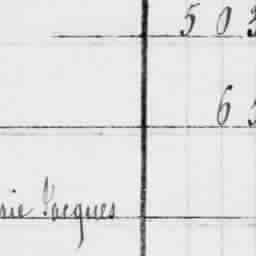 503
65
sie Jacques